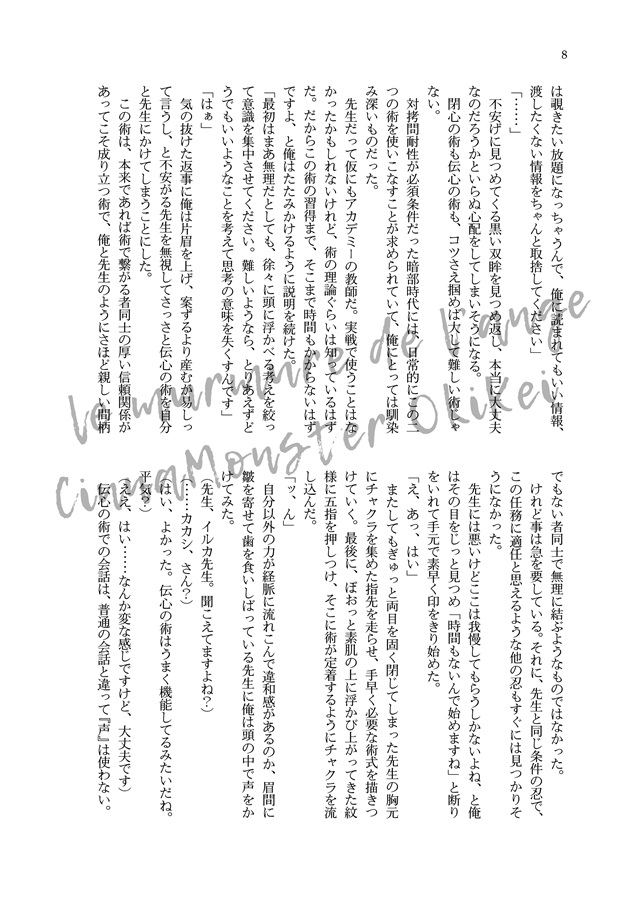 8
は覗きたい放題になっちゃうんで、俺に読まれてもいい情報、
渡したくない情報をちゃんと取捨してください」
「……」
不安げに見つめてくる黒い双眸を見つめ返し、本当に大丈夫
なのだろうかといらぬ心配をしてしまいそうになる。
閉心の術も伝心の術も、コツさえ掴めば大して難しい術じゃ
ない。
対拷問耐性が必須条件だった暗部時代には、日常的にこの二
つの術を使いこなすことが求められていて、俺にとっては馴染
み深いものだった。
先生だって仮にもアカデミーの教師だ。実戦で使うことはな
かったかもしれないけれど、術の理論ぐらいは知っているはず
だ。だからこの術の習得まで、そこまで時間もかからないはず
ですよ、と俺はたたみかけるように説明を続けた。
「最初はまあ無理だとしても、徐々に頭に浮かべる考えを絞っ
て意識を集中させてください。難しいようなら、とりあえずど
うでもいいようなことを考えて思考の意味を失くすんです」
「はぁ」
気の抜けた返事に俺は片眉を上げ、案ずるより産むが易しっ
て言うし、と不安がる先生を無視してさっさと伝心の術を自分
と先生にかけてしまうことにした。
この術は、本来であれば術で繋がる者同士の厚い信頼関係が
あってこそ成り立つ術で、俺と先生のようにさほど親しい間柄
でもない者同士で無理に結ぶようなものではなかった。
けれど事は急を要している。それに、先生と同じ条件の忍で、
この任務に適任と思えるような他の忍もすぐには見つかりそ
うになかった。
先生には悪いけどここは我慢してもらうしかないよね、と俺
はその目をじっと見つめ「時間もないんで始めますね」と断り
をいれて手元で素早く印をきり始めた。
「え、あっ、はい」
またしてもぎゅっと両目を固く閉じてしまった先生の胸元
にチャクラを集めた指先を走らせ、手早く必要な術式を描きつ
けていく。最後に、ぼおっと素肌の上に浮かび上がってきた紋
様に五指を押しつけ、そこに術が定着するようにチャクラを流
し込んだ。
「ッ、ん」
自分以外の力が経脈に流れこんで違和感があるのか、眉間に
皺を寄せて歯を食いしばっている先生に俺は頭の中で声をか
けてみた。
(先生、イルカ先生。聞こえてますよね?)
(……カカシ、さん?)
(はい、よかった。伝心の術はうまく機能してるみたいだね。
平気?)
(ええ、はい……なんか変な感じですけど、大丈夫です)
伝心の術での会話は、普通の会話と違って『声』は使わない。
CinnaMonster Okikei